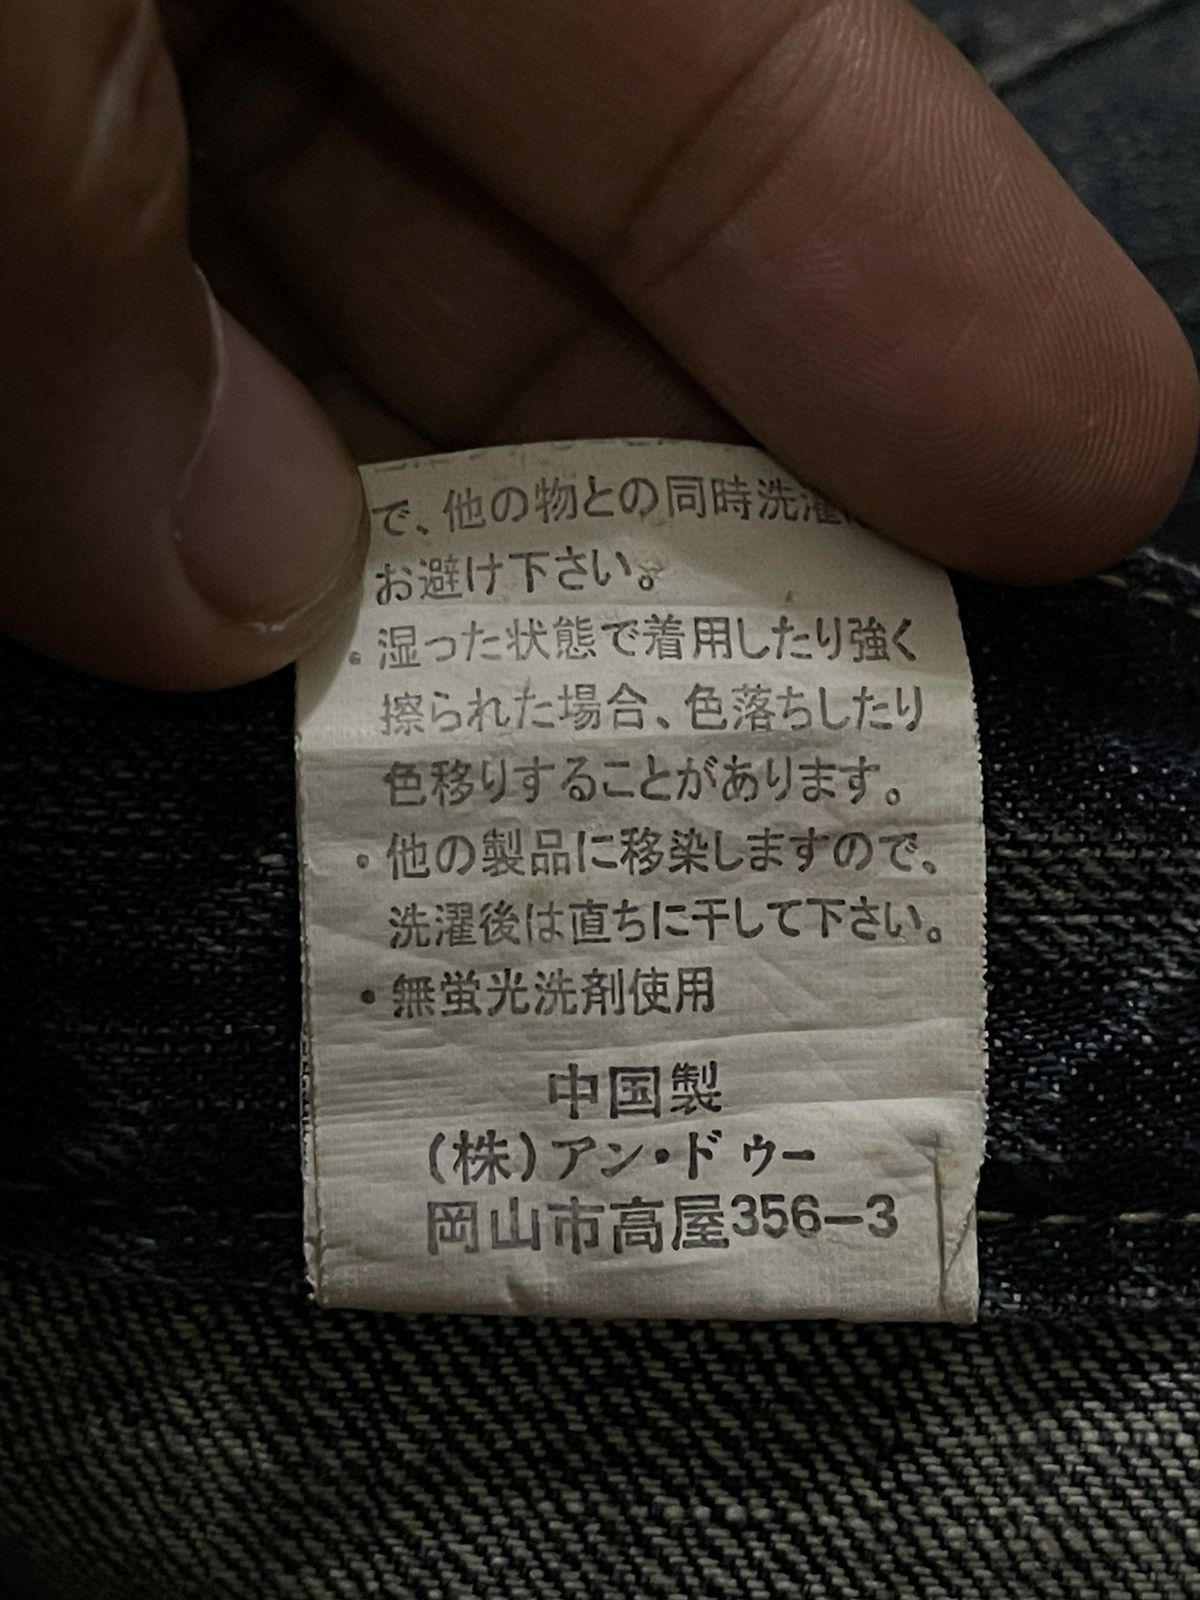 で、他の物との同時洗濯は
お避け下さい。
・湿った状態で着用したり強く
擦られた場合、色落ちしたり
色移りすることがあります。
・他の製品に移染しますので、
洗濯後は直ちに干して下さい。
・無蛍光洗剤使用
中国製
(株)アン・ドゥー
岡山市高屋356-3